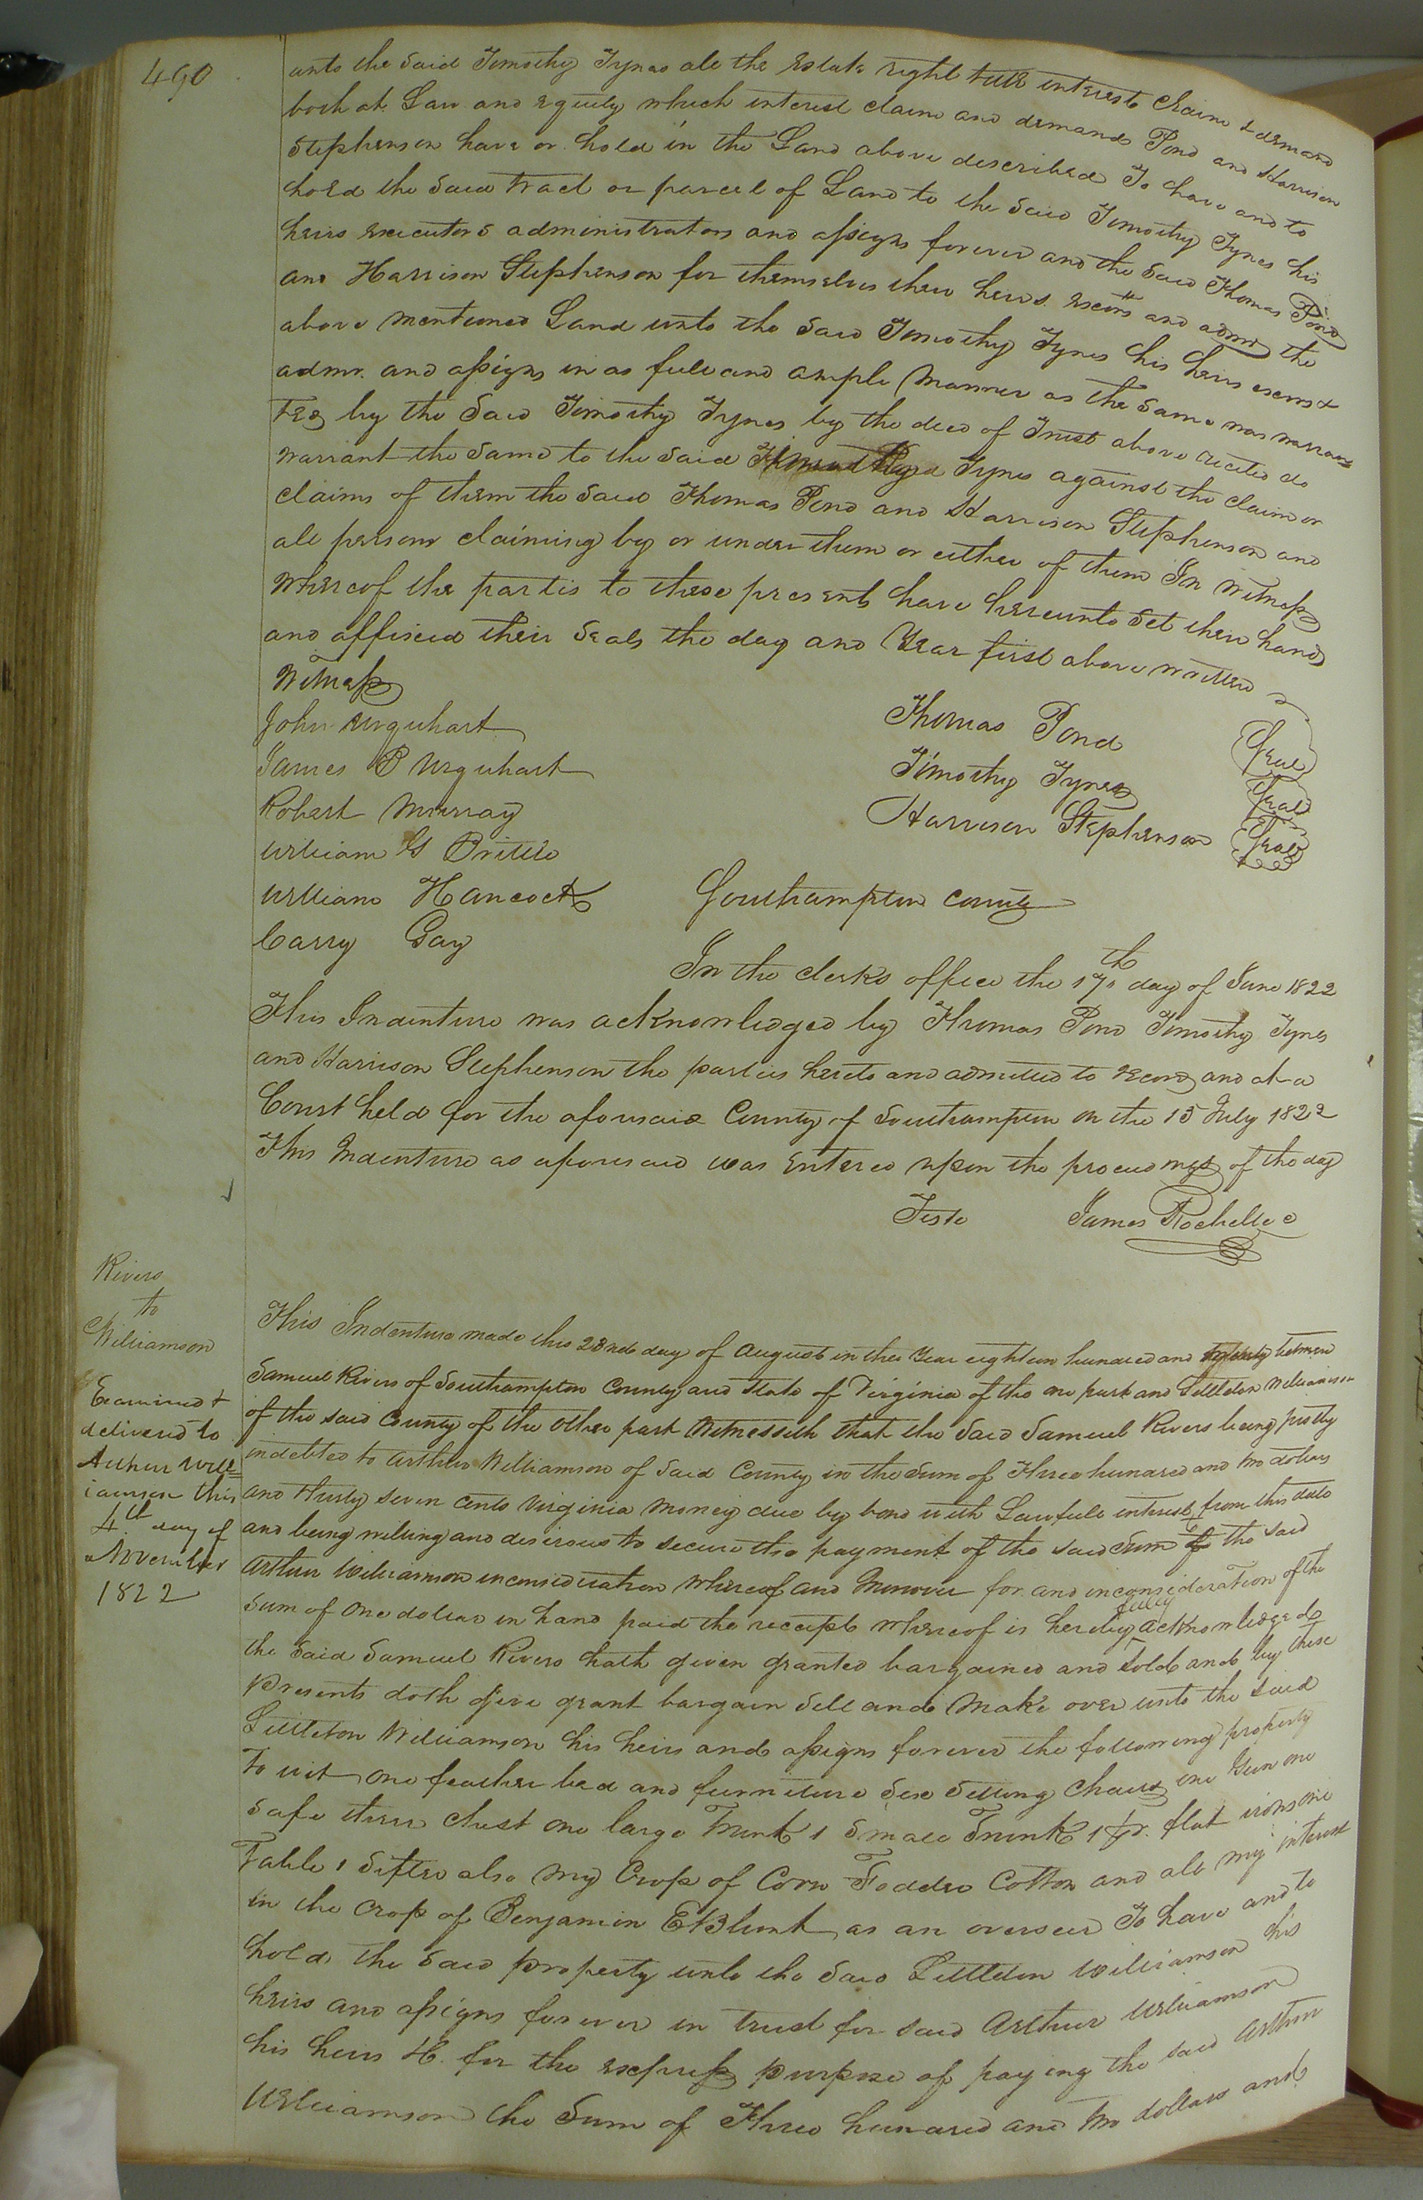 490
unto the said Timothy Tynes all the Estate right title interest Claim & demand
both at Law and equity which interest claim and demands Pond and Harrison
Stephenson have or hold in the Land above described To have and to
hold the said tract or parcel of Land to the said Timothy Tynes his
heirs executors administrators and assigns forever and the said Thomas Pond
and Harrison Stephenson for themselves their heirs exectrs and admrs the
above mentioned Land unto the said Timothy Tynes his heirs execrs &
admr. and assigns in as full and ample manner as the same was warran
ted by the said Timothy Tynes by the deed of Trust above recited do
warrant the same to the said Tynes against the claim or
claims of them the said Thomas Pond and Harrison Stephenson and
all persons claiming by or under them or either of them In witness
whereof the partis to these presents have hereunto set their hands
and affixed their seals the day and Year first above written
Witness
John Urquhart
James B Urquhart
Robert Murray
William G Brittle
William Hancock
Carry Gay
Thomas Pond Seal
Timothy Tynes Seal
Harrison Stephenson Seal
Southampton County
In the clerks office the 17th day of June 1822
This Indenture was acknowledged by Thomas Pond Timothy Tynes
and Harrison Stephenson the parties hereto and admitted to record and at a
Court held for the aforesaid County of Southampton on the 15 July 1822
This Indenture as aforesaid was Entered upon the proceedings of the day
Teste James Rochelle c
Rivers
to
Williamson
Examined &
delivered to
Arthur Will=
iamson this
4th day of
November
1822
This Indenture made this 23nd day of August in the Year eighteen hundred and twenty between
Samuel Rivers of Southampton County and State of Virginia of the one part and Littleton Williamson
of the said County of the other part Witnesseth that the said Samuel Rivers being justly
indebted to Arthur Williamson of said County in the sum of Three hundred and two dollars
and thirty seven cents Virginia money due by bond with Lawfull interest from this date
and being willing and desirous to secure the payment of the said sum to the said
Arthur Williamson in consideration whereof and Moreover for and in consideration of the
sum of one dollar in hand paid the receipt whereof is hereby fully acknowledged
the said Samuel Rivers hath given granted bargained and sold and by these
presents doth give grant bargain sell and make over unto the said
Littleton Williamson his heirs and assigns forever the following property
To wit one feather bed and furniture six setting chairs one Gun one
safe three chest one large Trunk 1 small Trunk 1 pr. flat irons one
Table 1 Sifter also my Crop of Corn Fodder Cotton and all my interest
in the crop of Benjamin E Blunt as an overseer To have and to
hold the said property unto the said Littleton Williamson his
heirs and assigns forever in trust for said Arthur Williamson
his heirs &c. for the express purpose of paying the said Arthur
Williamson the Sum of Three hundred and two dollars and